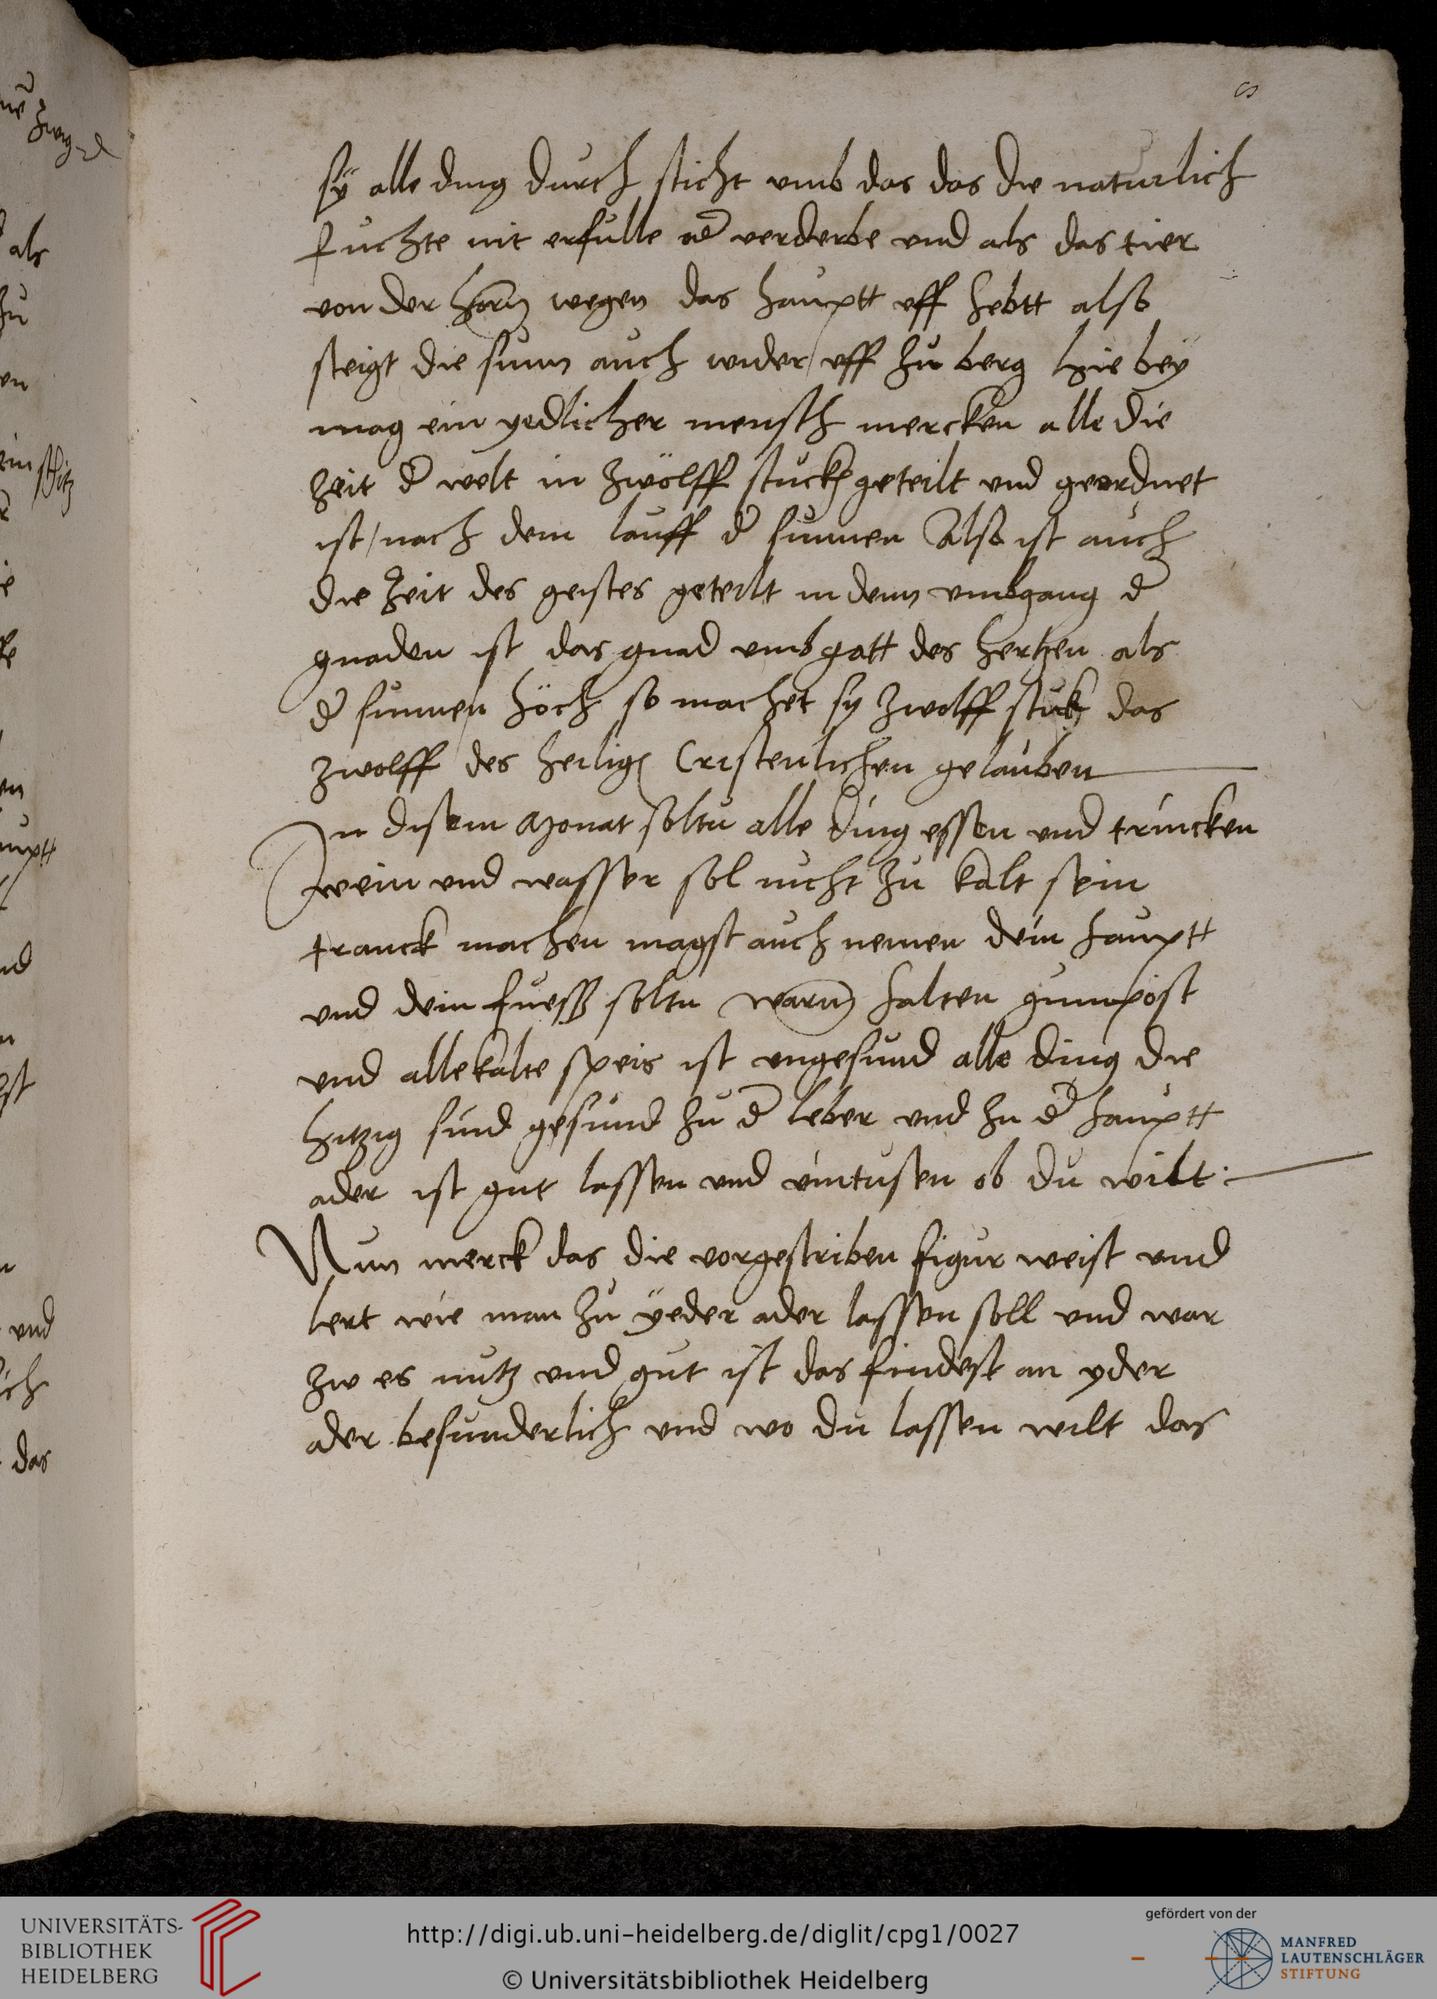 8
sÿ alle ding durch sticht vmb das das die naturlich
fuchte nit erfulle od verderbe vnd als das tier
von der horn wegen das hauptt vff hebtt also
steigt die sunn auch wider vff zu berg hie bey
mag ein yedlicher mensch mercken alle die
zeit d welt in zwölff stuck geteilt vnd geordnet
ist / nach dem lauff d sunnen Also ist auch
die zeit des geistes geteilt in dem vmbgang d
gnaden ist das gnad vmb gatt des hertzen als
d sunnen höch so machet sy zwolff stuk das
zwolff des heilig Cristenlichen gelauben
In disem Monat soltu alle ding essen vnd trincken
wein vnd wasser sol nicht zu kalt sein
tranck machen magst auch nemen dein hauptt
vnd dein fuess soltu warm halten gumpost
vnd alle kalte speis ist vngesund alle ding die
hitzig sind gesund zu d leber vnd zu d hauptt
ader ist gut lassen vnd vintusen ob du wilt :
Nun merck das die vorgestriben figur weist vnd
lert wie man zu ÿeder ader lassen soll vnd war
zw es nutz vnd gut ist das findest an yder
ader besunderlich vnd wo du lassen wilt das
UNIVERSITÄTS-
BIBLIOTHEK
HEIDELBERG
http://digi.ub.uni-heidelberg.de/diglit/cpg1/0027
© Universitätsbibliothek Heidelberg
gefördert von der
MANFRED
LAUTENSCHLÄGER
STIFTUNG